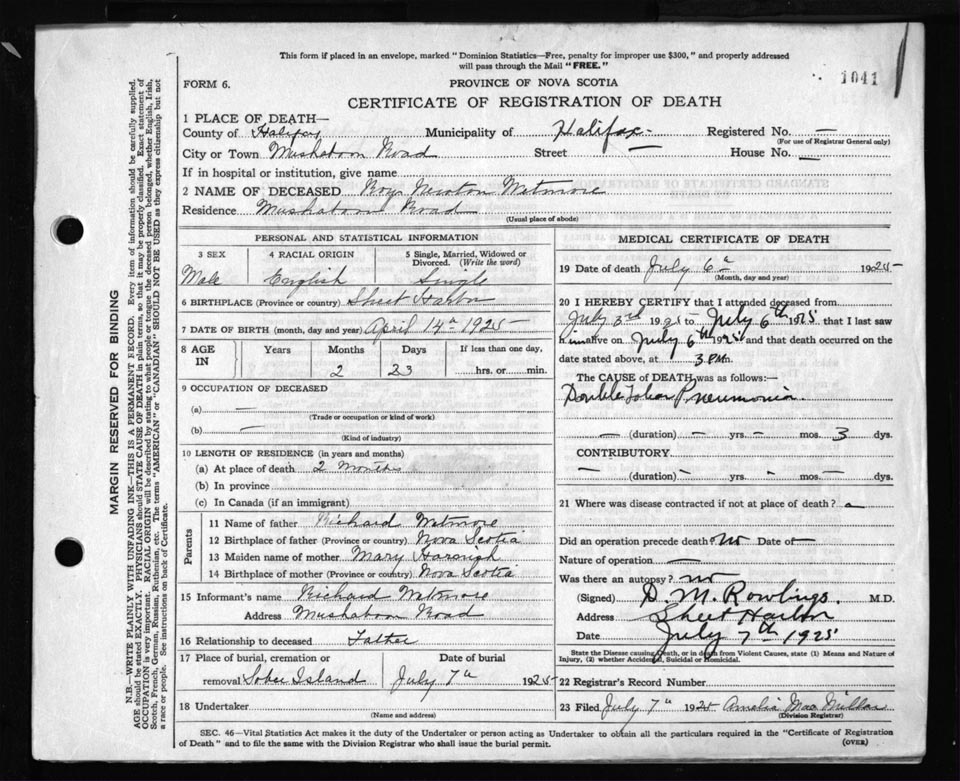 This form if placed in an envelope, marked "Dominion Statistics—Free, penalty for improper use $300," and properly addressed
will pass through the Mail "FREE."
1041
FORM 6.
PROVINCE OF NOVA SCOTIA
CERTIFICATE OF REGISTRATION OF DEATH
1 PLACE OF DEATH—
County of Halifax Municipality of Halifax - Registered No. —
(For use of Registrar General only)
City or Town Mushaboom Road Street — House No. —
If in hospital or institution, give name
2 NAME OF DECEASED Roy Newton Wetmore
Residence Mushaboom Road
(Usual place of abode)
PERSONAL AND STATISTICAL INFORMATION
3 SEX 4 RACIAL ORIGIN 5 Single, Married, Widowed or
Divorced. (Write the word)
Male English Single
6 BIRTHPLACE (Province or country) Sheet Harbor
7 DATE OF BIRTH (month, day and year) April 14th 1925
8 AGE IN Years Months Days If less than one day,
2 23 ........hrs. or........min.
9 OCCUPATION OF DECEASED
(a) —
(Trade or occupation or kind of work)
(b) —
(Kind of industry)
10 LENGTH OF RESIDENCE (in years and months)
(a) At place of death 2 Months
(b) In province
(c) In Canada (if an immigrant)
Parents
11 Name of father Richard Wetmore
12 Birthplace of father (Province or country) Nova Scotia
13 Maiden name of mother Mary
14 Birthplace of mother (Province or country) Nova Scotia
15 Informant's name Richard Wetmore
Address Mushaboom Road
16 Relationship to deceased Father
17 Place of burial, cremation or Date of burial
removal Sober Island July 7th 1925
18 Undertaker
(Name and address)
MEDICAL CERTIFICATE OF DEATH
19 Date of death July 6th 1925
(Month, day and year)
20 I HEREBY CERTIFY that I attended deceased from
July 3rd 1925 to July 6th 1925 that I last saw
him alive on July 6th 1925 and that death occurred on the
date stated above, at 3 P.M.
The CAUSE of DEATH was as follows:—
Double Lobar Pneumonia.
— (duration) — yrs. — mos. 3 dys.
CONTRIBUTORY
— (duration) — yrs. — mos. — dys.
21 Where was disease contracted if not at place of death?
Did an operation precede death? No Date of —
Nature of operation —
Was there an autopsy? no
(Signed) D. M. Rowlings. M.D.
Address Sheet Harbor
Date July 7th 1925
State the Disease causing Death, or in death from Violent Causes, state (1) Means and Nature of
Injury, (2) whether Accidental, Suicidal or Homicidal.
22 Registrar's Record Number
23 Filed July 7th 1925 Amelia MacMillan
(Division Registrar)
SEC. 46—Vital Statistics Act makes it the duty of the Undertaker or person acting as Undertaker to obtain all the particulars required in the "Certificate of Registration
of Death" and to file the same with the Division Registrar who shall issue the burial permit.
(OVER)
MARGIN RESERVED FOR BINDING
N.B.—WRITE PLAINLY WITH UNFADING INK—THIS IS A PERMANENT RECORD. Every item of information should be carefully supplied.
AGE should be stated EXACTLY. PHYSICIANS should STATE CAUSE OF DEATH in plain terms, so that it may be properly classified. Exact statement of
OCCUPATION is very important. RACIAL ORIGIN will be described by stating to what people or tongue the deceased person belonged, whether English, Irish,
Scotch, French, German, Russian, Ruthenian, etc. The terms "AMERICAN" or "CANADIAN" SHOULD NOT BE USED as they express citizenship but not
a race or people. See instructions on back of Certificate.